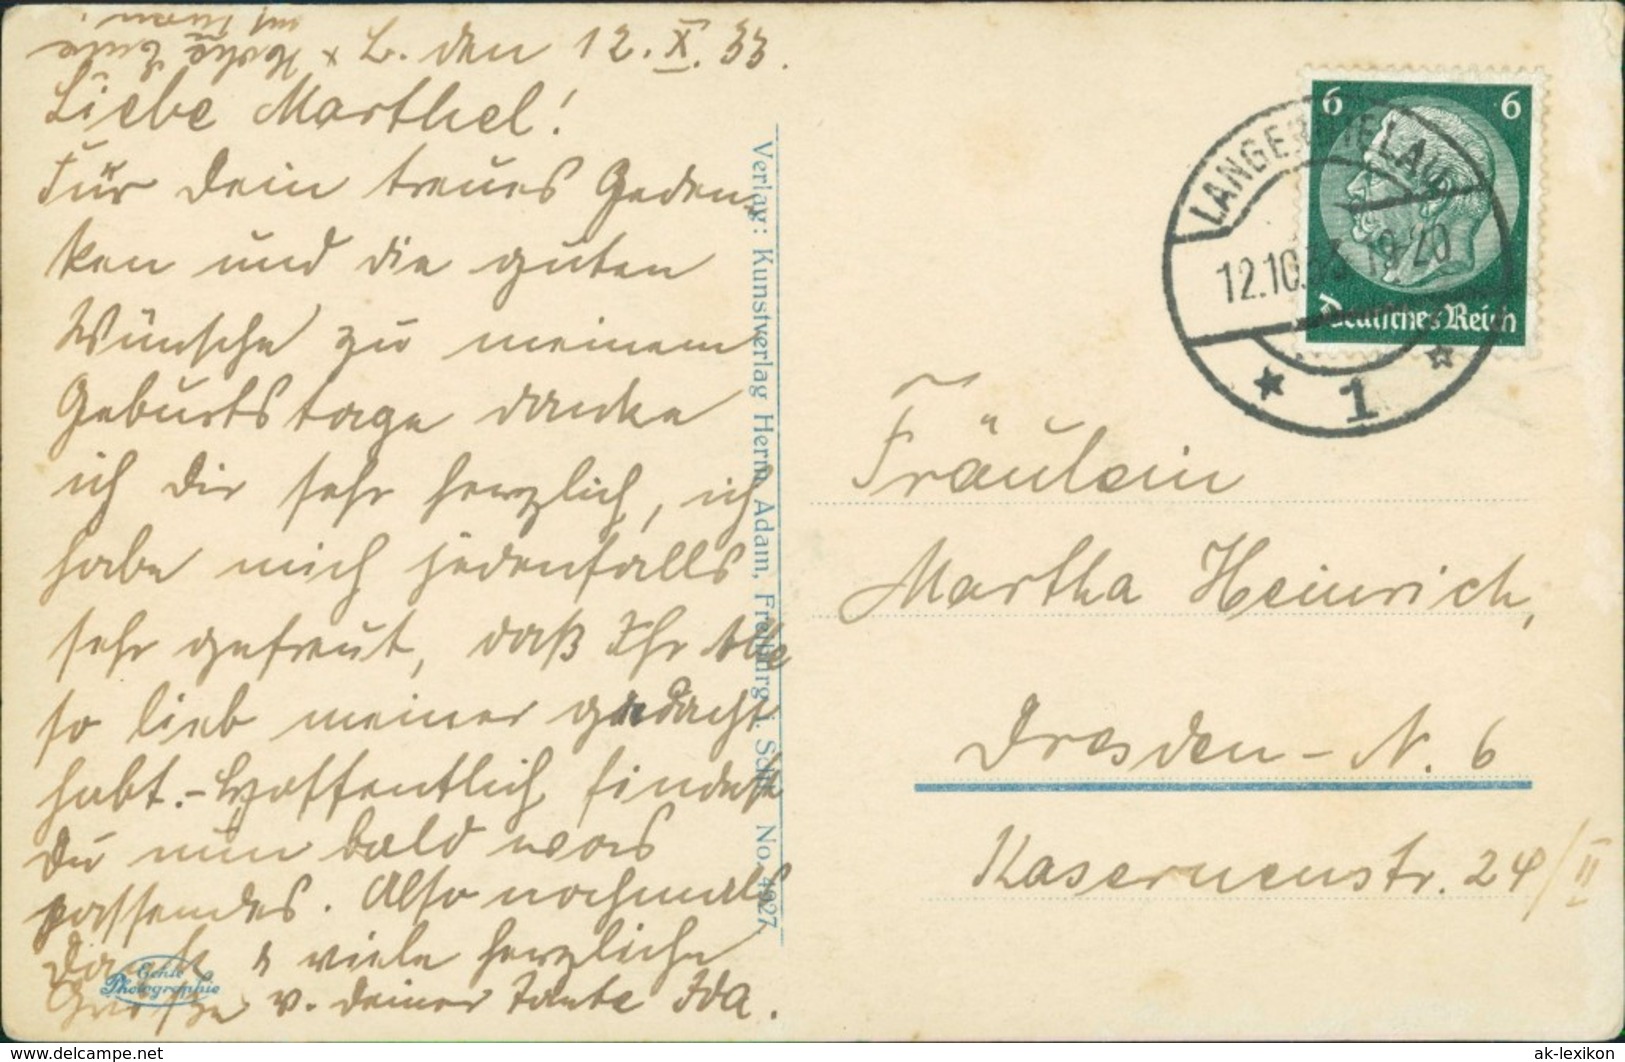 L. den 12. X. 33.
Liebe Marthel!
Für Dein treues Geden-
ken und die guten
Wünsche zu meinem
Geburtstage danke
ich Dir sehr herzlich, ich
habe mich jedenfalls
sehr gefreut, daß Ihr alle
so lieb meiner gedacht
habt. - Hoffentlich findest
Du nun bald was
passendes. Also nochmals
Dank & viele herzliche
Grüße v. Deiner Tante Ida.
Echte
Photographie
Verlag: Kunstverlag Herm. Adam, Freiburg i. Schl. No. 4927
LANGENBIELAU
12.10.33 19-20
* 1 *
6 6
Deutsches Reich
Fräulein
Martha Heinrich,
Dresden - N. 6
Kasernenstr. 24/II
delcampe.net
ak-lexikon